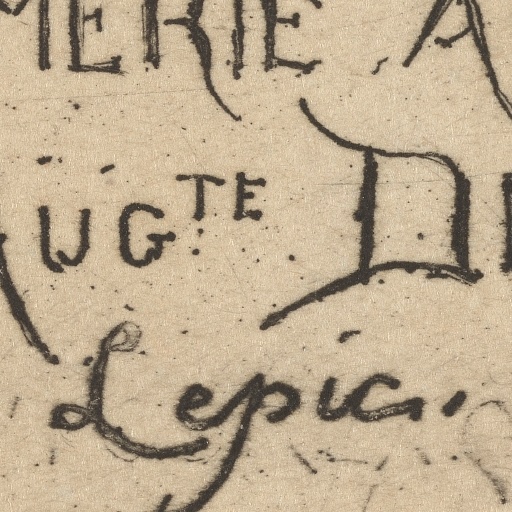 MERIE A
UG.TE D
Lepic..